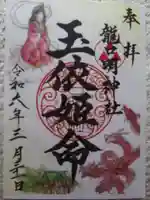 奉拝
龍口明神社
玉依姫命
令和六年三月三十日